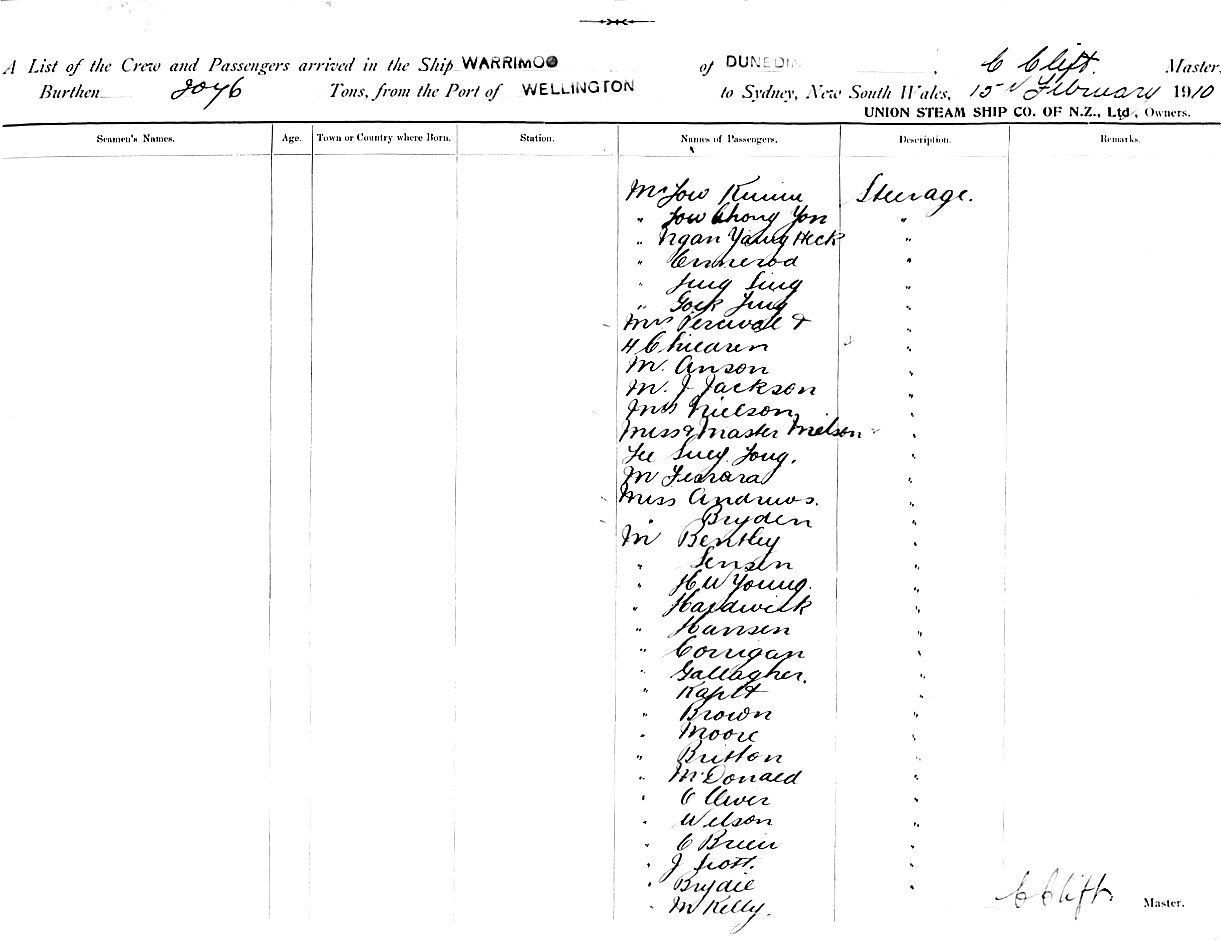 A List of the Crew and Passengers arrived in the Ship WARRIMOO of DUNEDIN, C Clift. Master,
Burthen 3046 Tons, from the Port of WELLINGTON to Sydney, New South Wales, 15th February 1910
UNION STEAM SHIP CO. OF N.Z., Ltd, Owners.
Seamen's Names. Age. Town or Country where Born. Station. Names of Passengers. Description. Remarks.
Mr Low Steerage.
" Low Chong Yon "
" Ngan Yaung Heck "
" Ormerod "
" Sing "
" Gock "
Mrs Percival & "
4 Children "
Mr. Anson "
Mr. J Jackson "
Mrs Nielson, "
Miss & Master Nielson "
"
Mr Ferrara "
Miss Andrews. "
" Bryden "
Mr Bentley "
" Jensen "
" H W Young. "
" Hardwick "
" Hansen "
" Corrigan "
" Gallagher. "
" "
" Brown "
" Moore "
" Britton "
" McDonald "
" "
" Wilson "
" O Brien "
" J Scott. "
" Brydie "
" M Kelly.
C Clift. Master.